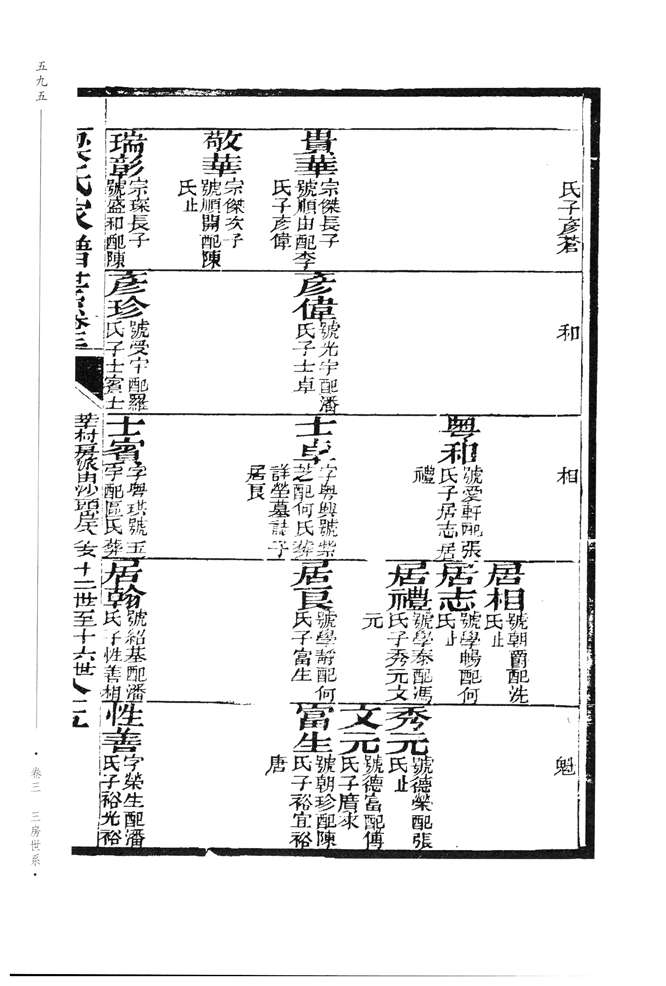 五九五
卷三　三房世系
氏子彥蒼
貴華
宗傑長子
號順由配李
氏子彥偉
敬華
宗傑次子
號順開配陳
氏止
瑞彭
宗琛長子
號盛和配陳
和
彥偉
號光宇配潘
氏子士卓
彥珍
號受宇配羅
氏子士賓士
相
粵和
號愛軒配張
氏子居志居
禮
士卓
字粵興號紫
芝配何氏葬
詳塋墓誌子
居良
士賓
字粵琪號玉
配區氏葬
居相
號朝爵配冼
氏止
居志
號學暢配何
氏止
居禮
號學泰配馮
氏子秀元文
元
居良
號學靜配何
氏子富生
居翰
號紹基配潘
氏子性善相
魁
秀元
號德榮配張
氏止
文元
號德富配傅
氏子廣求
富生
號朝珍配陳
氏子裕宜裕
唐
性善
字榮生配潘
氏子裕光裕
氏家譜世系卷三
房派由沙頭居 十二世至十六世